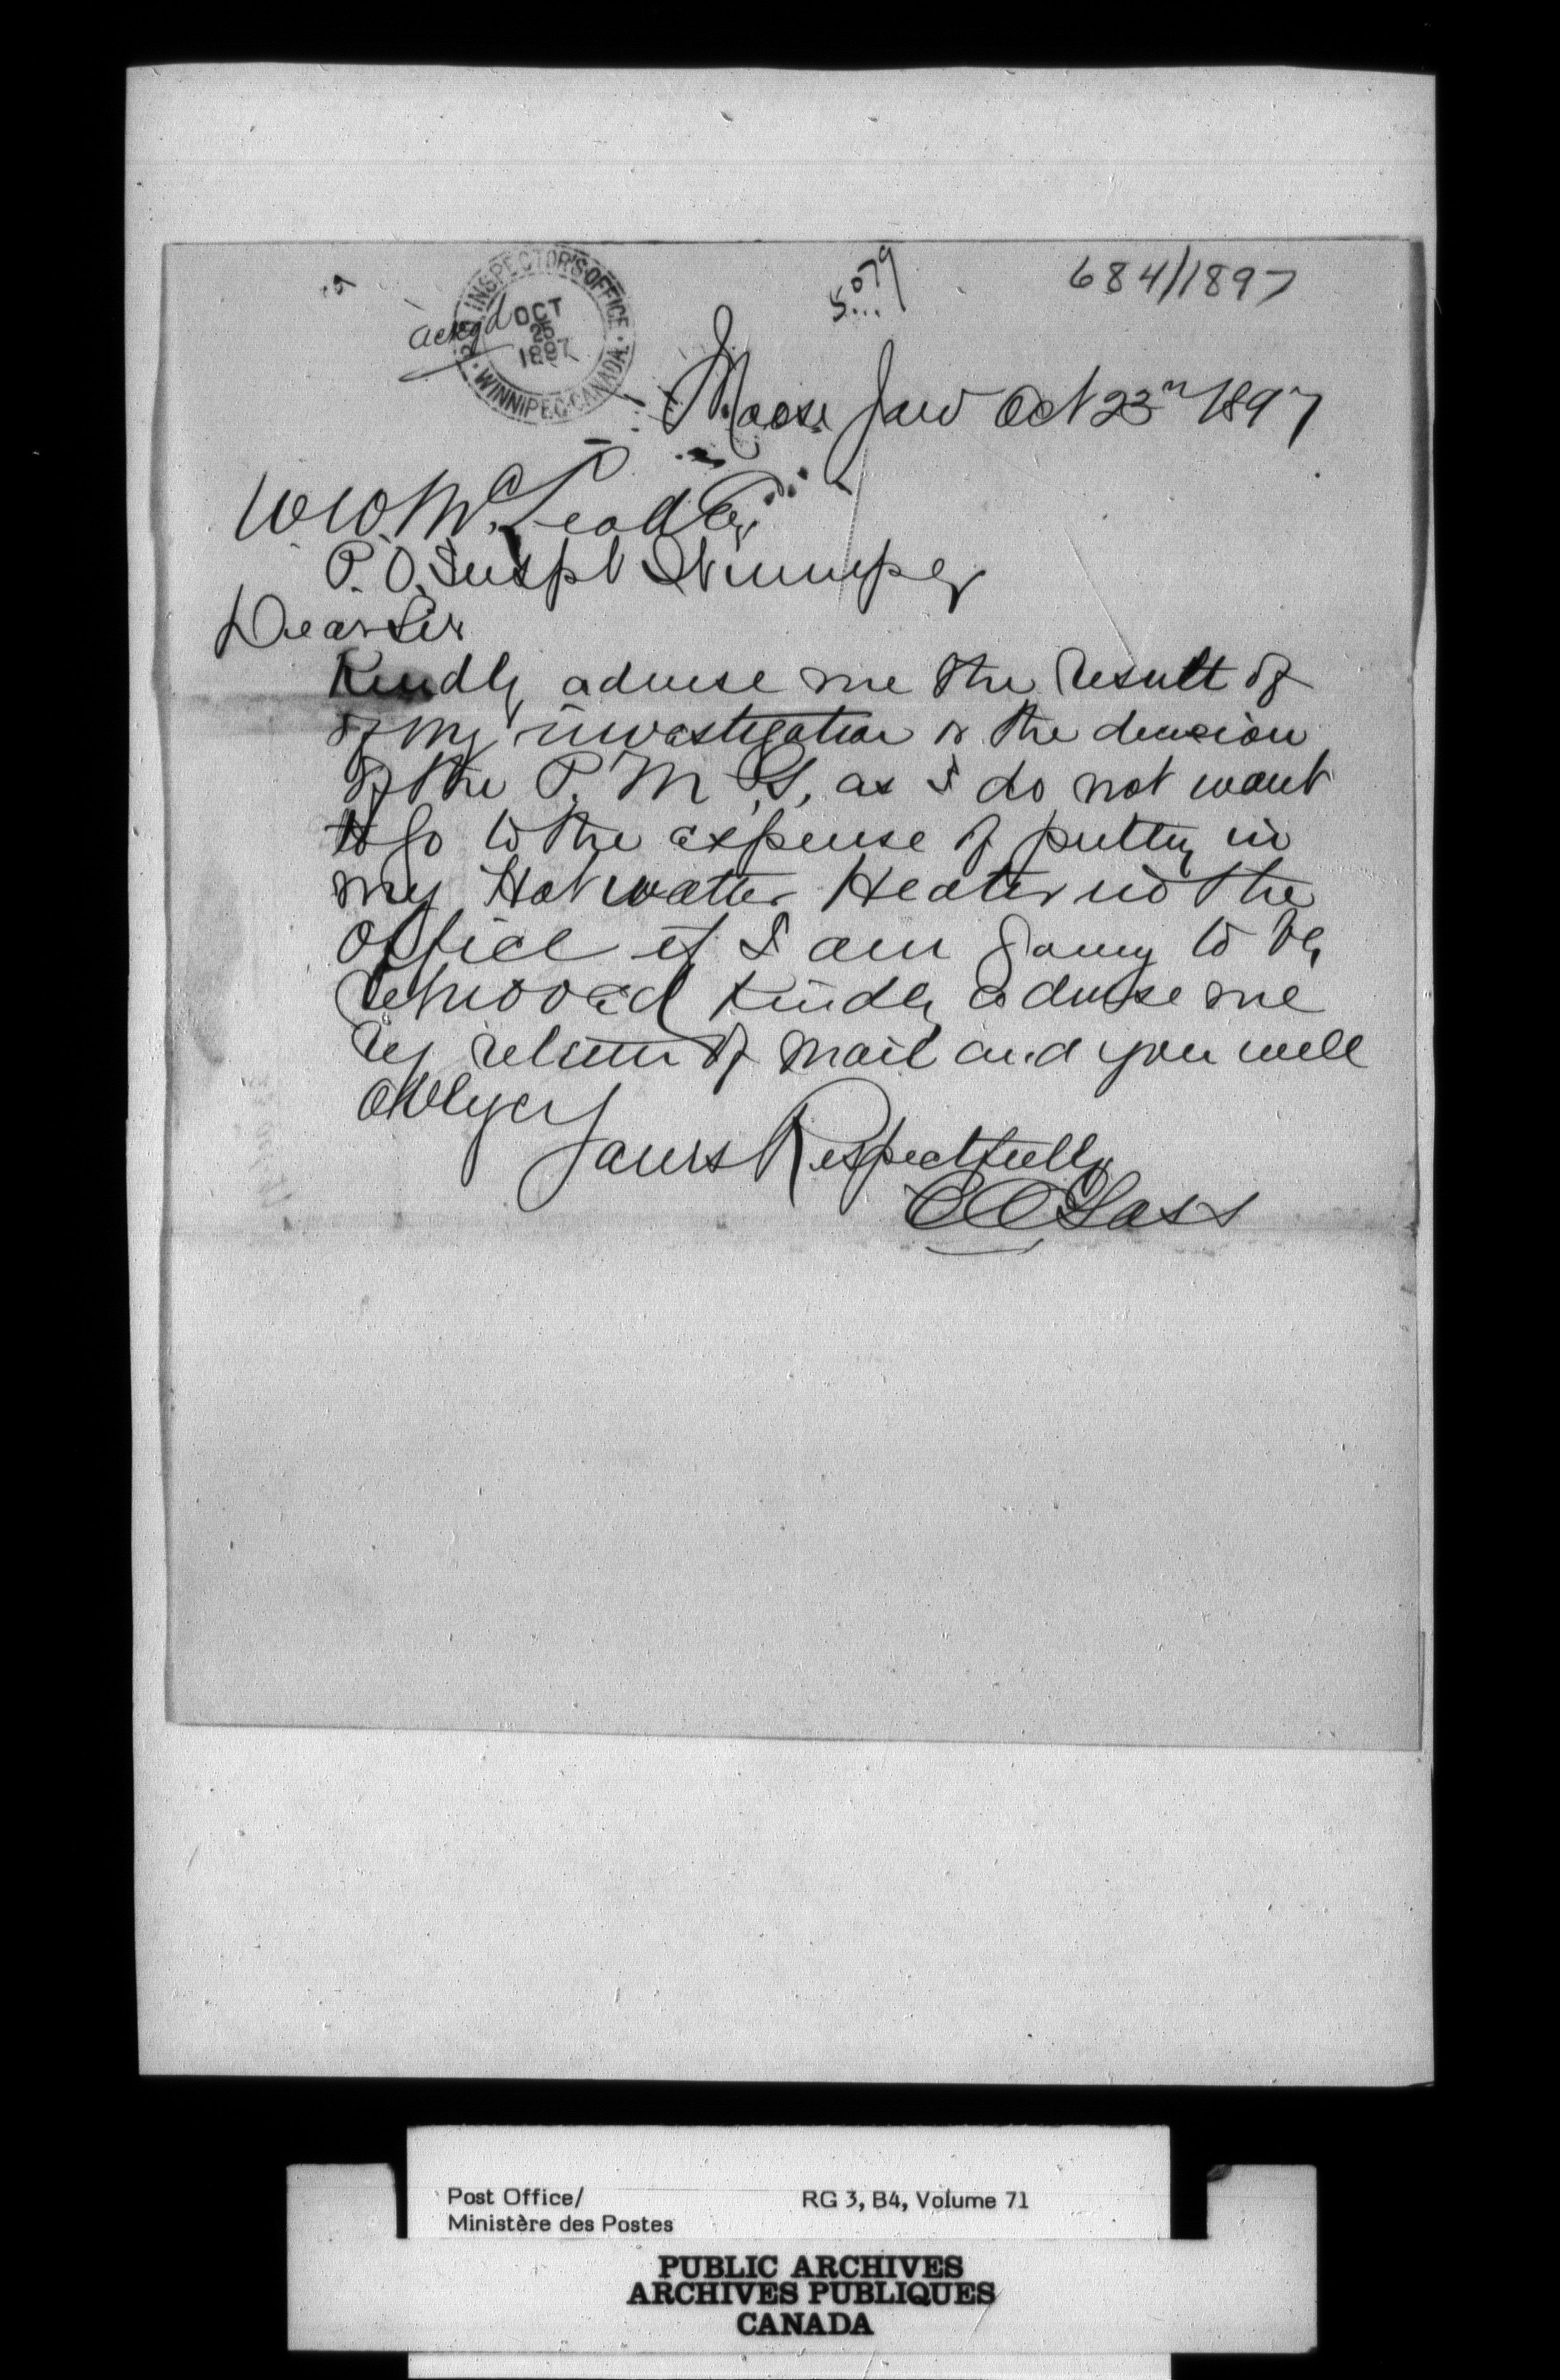 5079
684/1897
P.O. INSPECTOR'S OFFICE
WINNIPEG CANADA
OCT
1897
ackgd
Moose Jaw Oct 23rd 1897
W W McLeod Esq
P. O. Inspt Winnipeg
Dear Sir
Kindly advise me the result of
of my investigation or the decision
of the P. M. G, as I do not want
to go to the expense of putting in
my Hot watter Heater in the
office if I am going to be
removed Kindly advise me
by return of mail and you will
oblige
Yours Respectfully
C A Glass
Post Office/
Ministère des Postes
RG 3, B4, Volume 71
PUBLIC ARCHIVES
ARCHIVES PUBLIQUES
CANADA